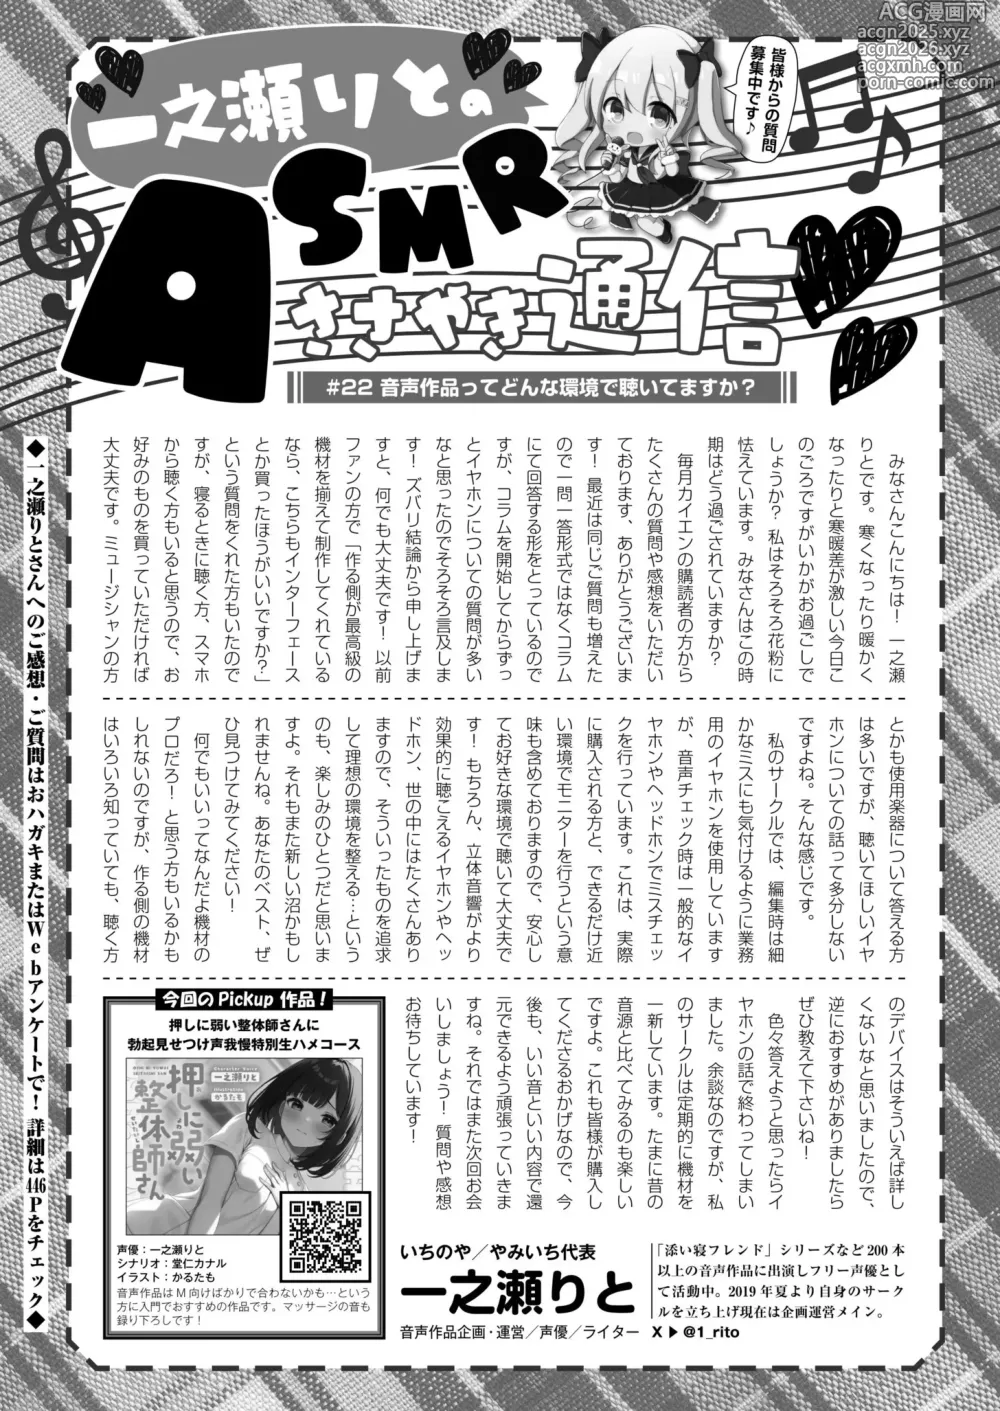 ACG漫画网
acgn2025.xyz
acgn2026.xyz
acgxmh.com
porn-comic.com
皆様からの質問
募集中です♪
一之瀬りとの
ASMR
ささやき通信
#22 音声作品ってどんな環境で聴いてますか？
みなさんこんにちは！ 一之瀬
りとです。寒くなったり暖かく
なったりと寒暖差が激しい今日こ
のごろですがいかがお過ごしで
しょうか？ 私はそろそろ花粉に
怯えています。みなさんはこの時
期はどう過ごされていますか？
毎月カイエンの購読者の方から
たくさんの質問や感想をいただい
ております、ありがとうございま
す！ 最近は同じご質問も増えた
ので一問一答形式ではなくコラム
にて回答する形をとっているので
すが、コラムを開始してからずっ
とイヤホンについての質問が多い
なと思ったのでそろそろ言及しま
す！ ズバリ結論から申し上げま
すと、何でも大丈夫です！ 以前
ファンの方で「作る側が最高級の
機材を揃えて制作してくれている
なら、こちらもインターフェース
とか買ったほうがいいですか？」
という質問をくれた方もいたので
すが、寝るときに聴く方、スマホ
から聴く方もいると思うので、お
好みのものを買っていただければ
大丈夫です。ミュージシャンの方
とかも使用楽器について答える方
は多いですが、聴いてほしいイヤ
ホンについての話って多分しない
ですよね。そんな感じです。
私のサークルでは、編集時は細
かなミスにも気付けるように業務
用のイヤホンを使用しています
が、音声チェック時は一般的なイ
ヤホンやヘッドホンでミスチェッ
クを行っています。これは、実際
に購入される方と、できるだけ近
い環境でモニターを行うという意
味も含めておりますので、安心し
てお好きな環境で聴いて大丈夫で
す！ もちろん、立体音響がより
効果的に聴こえるイヤホンやヘッ
ドホン、世の中にはたくさんあり
ますので、そういったものを追求
して理想の環境を整える…という
のも、楽しみのひとつだと思いま
すよ。それもまた新しい沼かもし
れませんね。あなたのベスト、ぜ
ひ見つけてみてください！
何でもいいってなんだよ機材の
プロだろ！ と思う方もいるかも
しれないのですが、作る側の機材
はいろいろ知っていても、聴く方
のデバイスはそういえば詳し
くないなと思いましたので、
逆におすすめがありましたら
ぜひ教えて下さいね！
色々答えようと思ったらイ
ヤホンの話で終わってしまい
ました。余談なのですが、私
のサークルは定期的に機材を
一新しています。たまに昔の
音源と比べてみるのも楽しい
ですよ。これも皆様が購入し
てくださるおかげなので、今
後も、いい音といい内容で還
元できるよう頑張っていきま
すね。それではまた次回お会
いしましょう！ 質問や感想
お待ちしています！
今回のPickup 作品！
押しに弱い整体師さんに
勃起見せつけ声我慢特別生ハメコース
押しに弱い
整体師さん
Character Voice
一之瀬りと
Illustration
かるたも
声優：一之瀬りと
シナリオ：堂仁カナル
イラスト：かるたも
音声作品はM向けばかりで合わないかも…という
方に入門でおすすめの作品です。マッサージの音も
録り下ろしです！
いちのや／やみいち代表
一之瀬りと
音声作品企画・運営／声優／ライター
「添い寝フレンド」シリーズなど200本
以上の音声作品に出演しフリー声優とし
て活動中。2019年夏より自身のサーク
ルを立ち上げ現在は企画運営メイン。
X▶@1_rito
◆一之瀬りとさんへのご感想・ご質問はおハガキまたはWebアンケートで！ 詳細は446Pをチェック◆